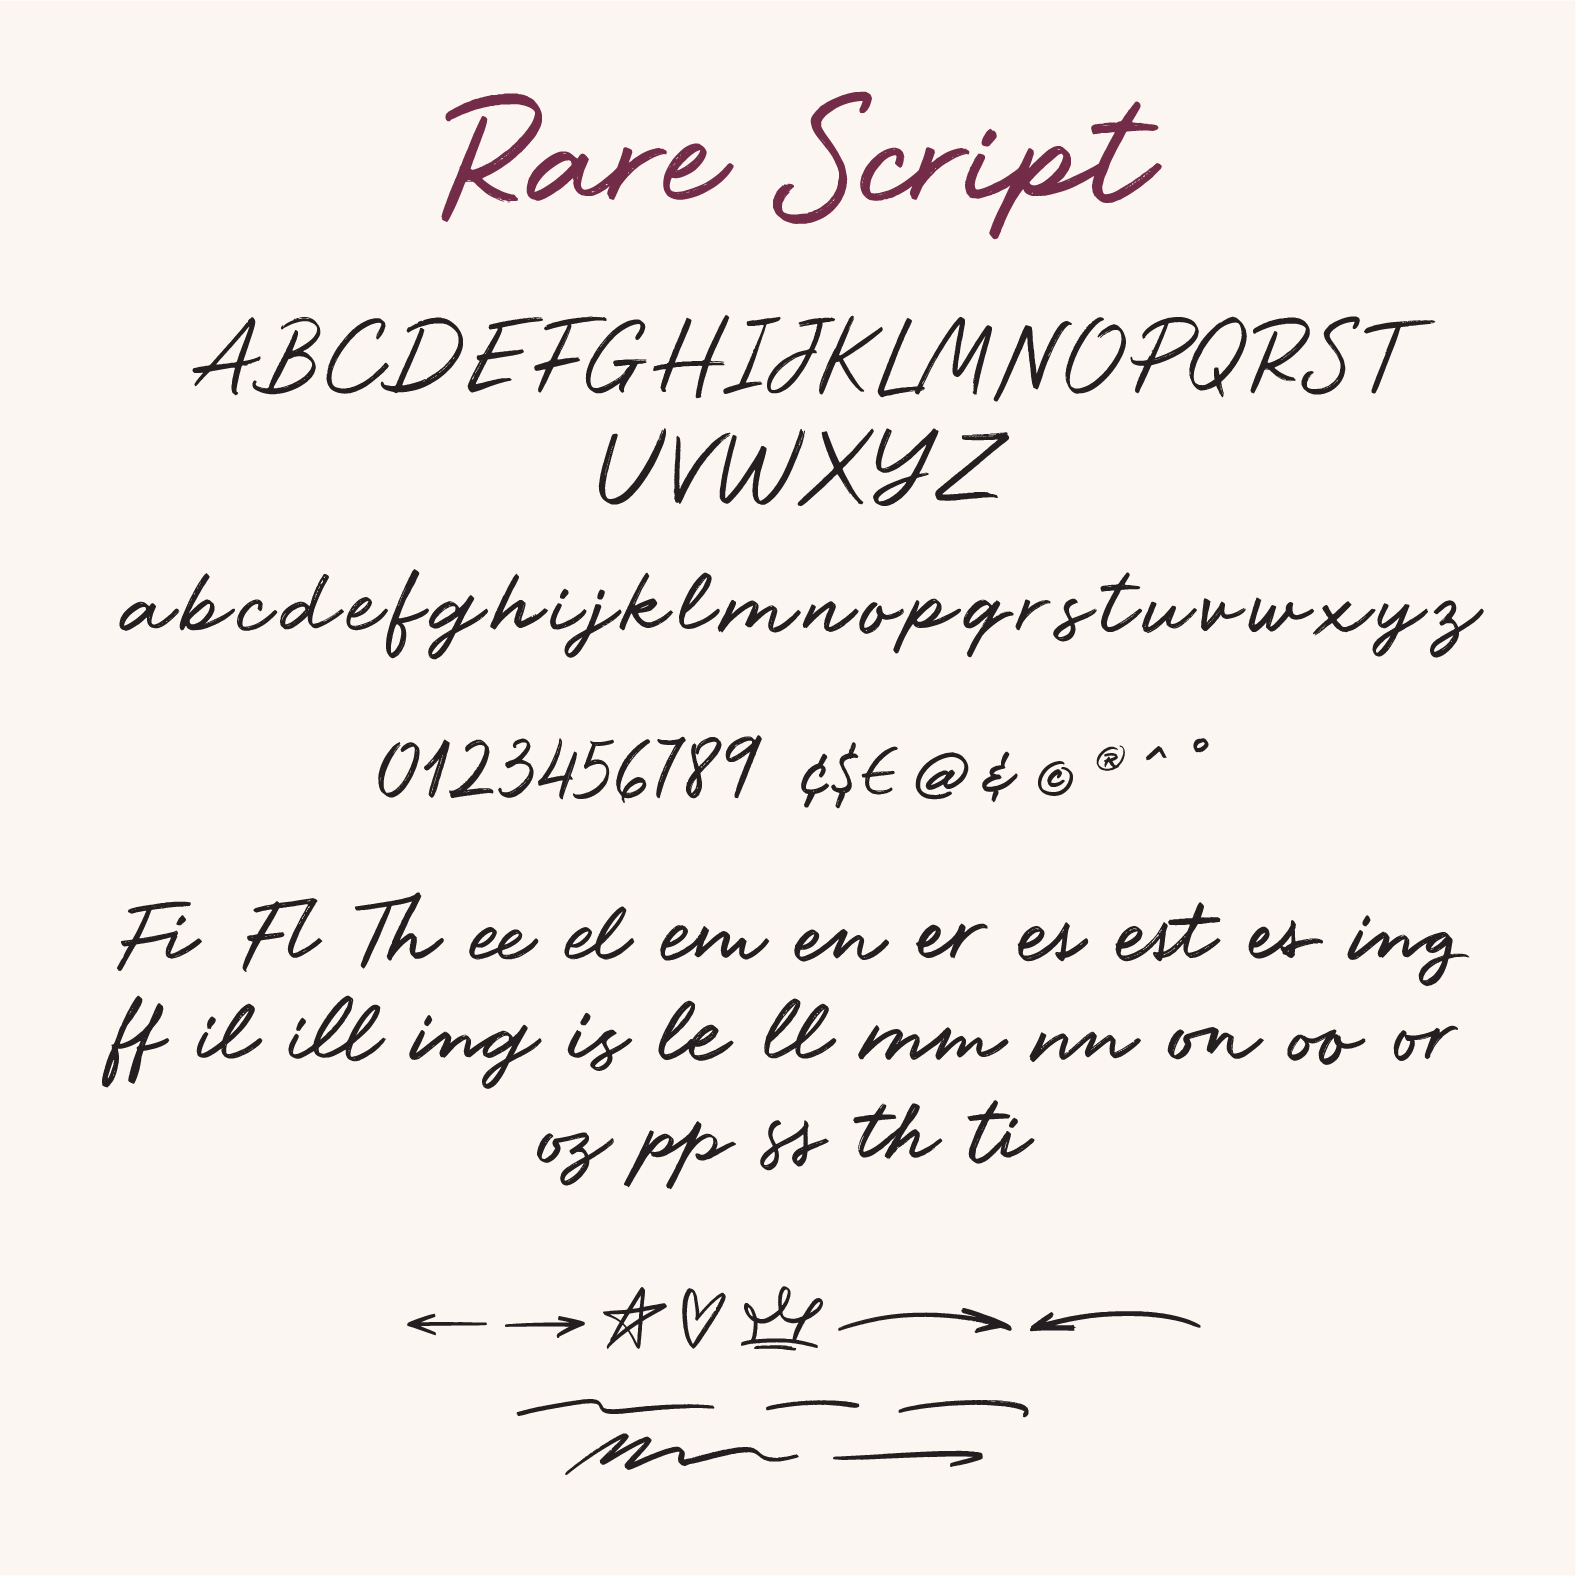 Rare Script
ABCDEFGHIJKLMNOPQRST
UVWXYZ
abcdefghijklmnopqrstuvwxyz
0123456789 ¢$€ @ & © ® ^ °
Fi Fl Th ee el em en er es est es ing
ff il ill ing is le ll mm nn on oo or
oz pp ss th ti